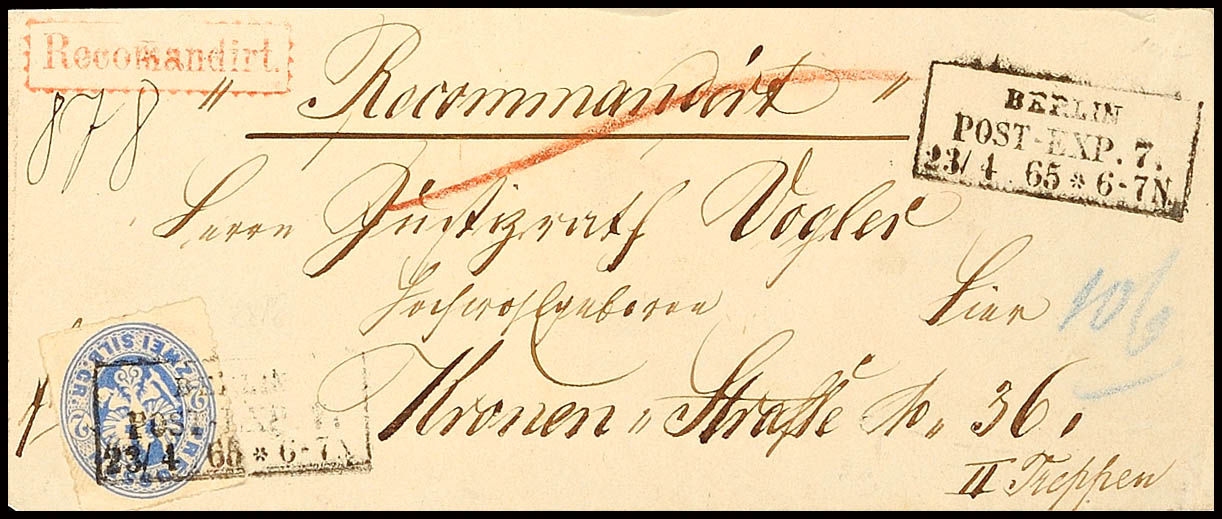 Recomandirt.
878
" Recommandirt "
BERLIN
POST-EXP. 7.
23/4 65 * 6-7N.
Herrn Justizrath Vogler
Hochwohlgeboren Hier
10/6
Kronen„Straße No. 36.
II Treppen
ZWEI SILB. GR.
BERLIN
POST-EXP. 7.
23/4 65 * 6-7N.